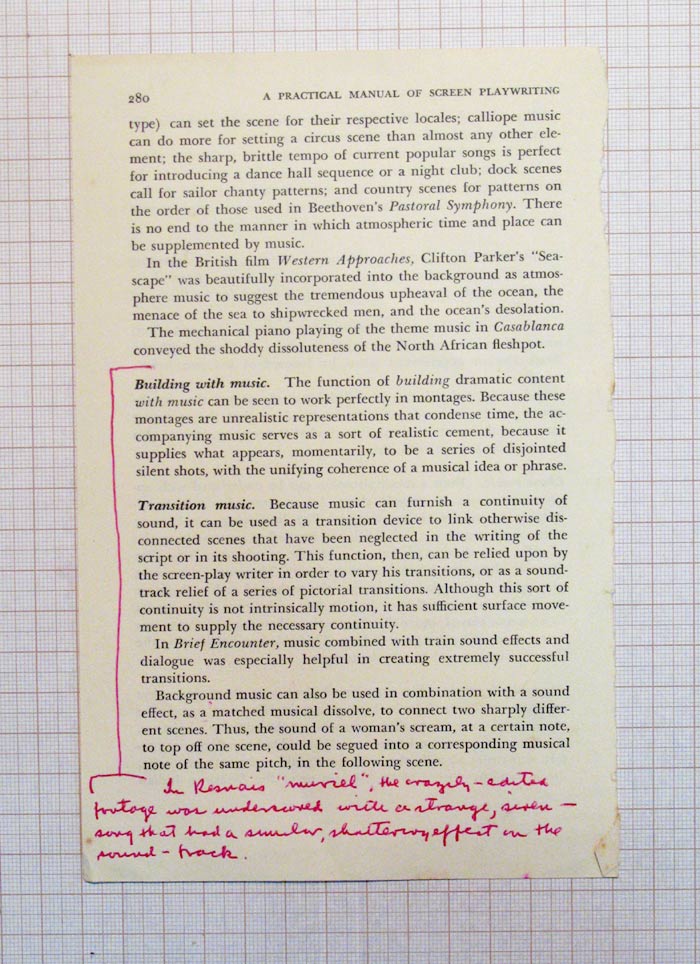 280 A PRACTICAL MANUAL OF SCREEN PLAYWRITING
type) can set the scene for their respective locales; calliope music
can do more for setting a circus scene than almost any other ele-
ment; the sharp, brittle tempo of current popular songs is perfect
for introducing a dance hall sequence or a night club; dock scenes
call for sailor chanty patterns; and country scenes for patterns on
the order of those used in Beethoven's Pastoral Symphony. There
is no end to the manner in which atmospheric time and place can
be supplemented by music.
In the British film Western Approaches, Clifton Parker's "Sea-
scape" was beautifully incorporated into the background as atmos-
phere music to suggest the tremendous upheaval of the ocean, the
menace of the sea to shipwrecked men, and the ocean's desolation.
The mechanical piano playing of the theme music in Casablanca
conveyed the shoddy dissoluteness of the North African fleshpot.
Building with music. The function of building dramatic content
with music can be seen to work perfectly in montages. Because these
montages are unrealistic representations that condense time, the ac-
companying music serves as a sort of realistic cement, because it
supplies what appears, momentarily, to be a series of disjointed
silent shots, with the unifying coherence of a musical idea or phrase.
Transition music. Because music can furnish a continuity of
sound, it can be used as a transition device to link otherwise dis-
connected scenes that have been neglected in the writing of the
script or in its shooting. This function, then, can be relied upon by
the screen-play writer in order to vary his transitions, or as a sound-
track relief of a series of pictorial transitions. Although this sort of
continuity is not intrinsically motion, it has sufficient surface move-
ment to supply the necessary continuity.
In Brief Encounter, music combined with train sound effects and
dialogue was especially helpful in creating extremely successful
transitions.
Background music can also be used in combination with a sound
effect, as a matched musical dissolve, to connect two sharply differ-
ent scenes. Thus, the sound of a woman's scream, at a certain note,
to top off one scene, could be segued into a corresponding musical
note of the same pitch, in the following scene.
In Resnais "muriel", the crazily-edited
footage was underscored with a strange, siren-
song that had a similar, shattering effect on the
sound-track.